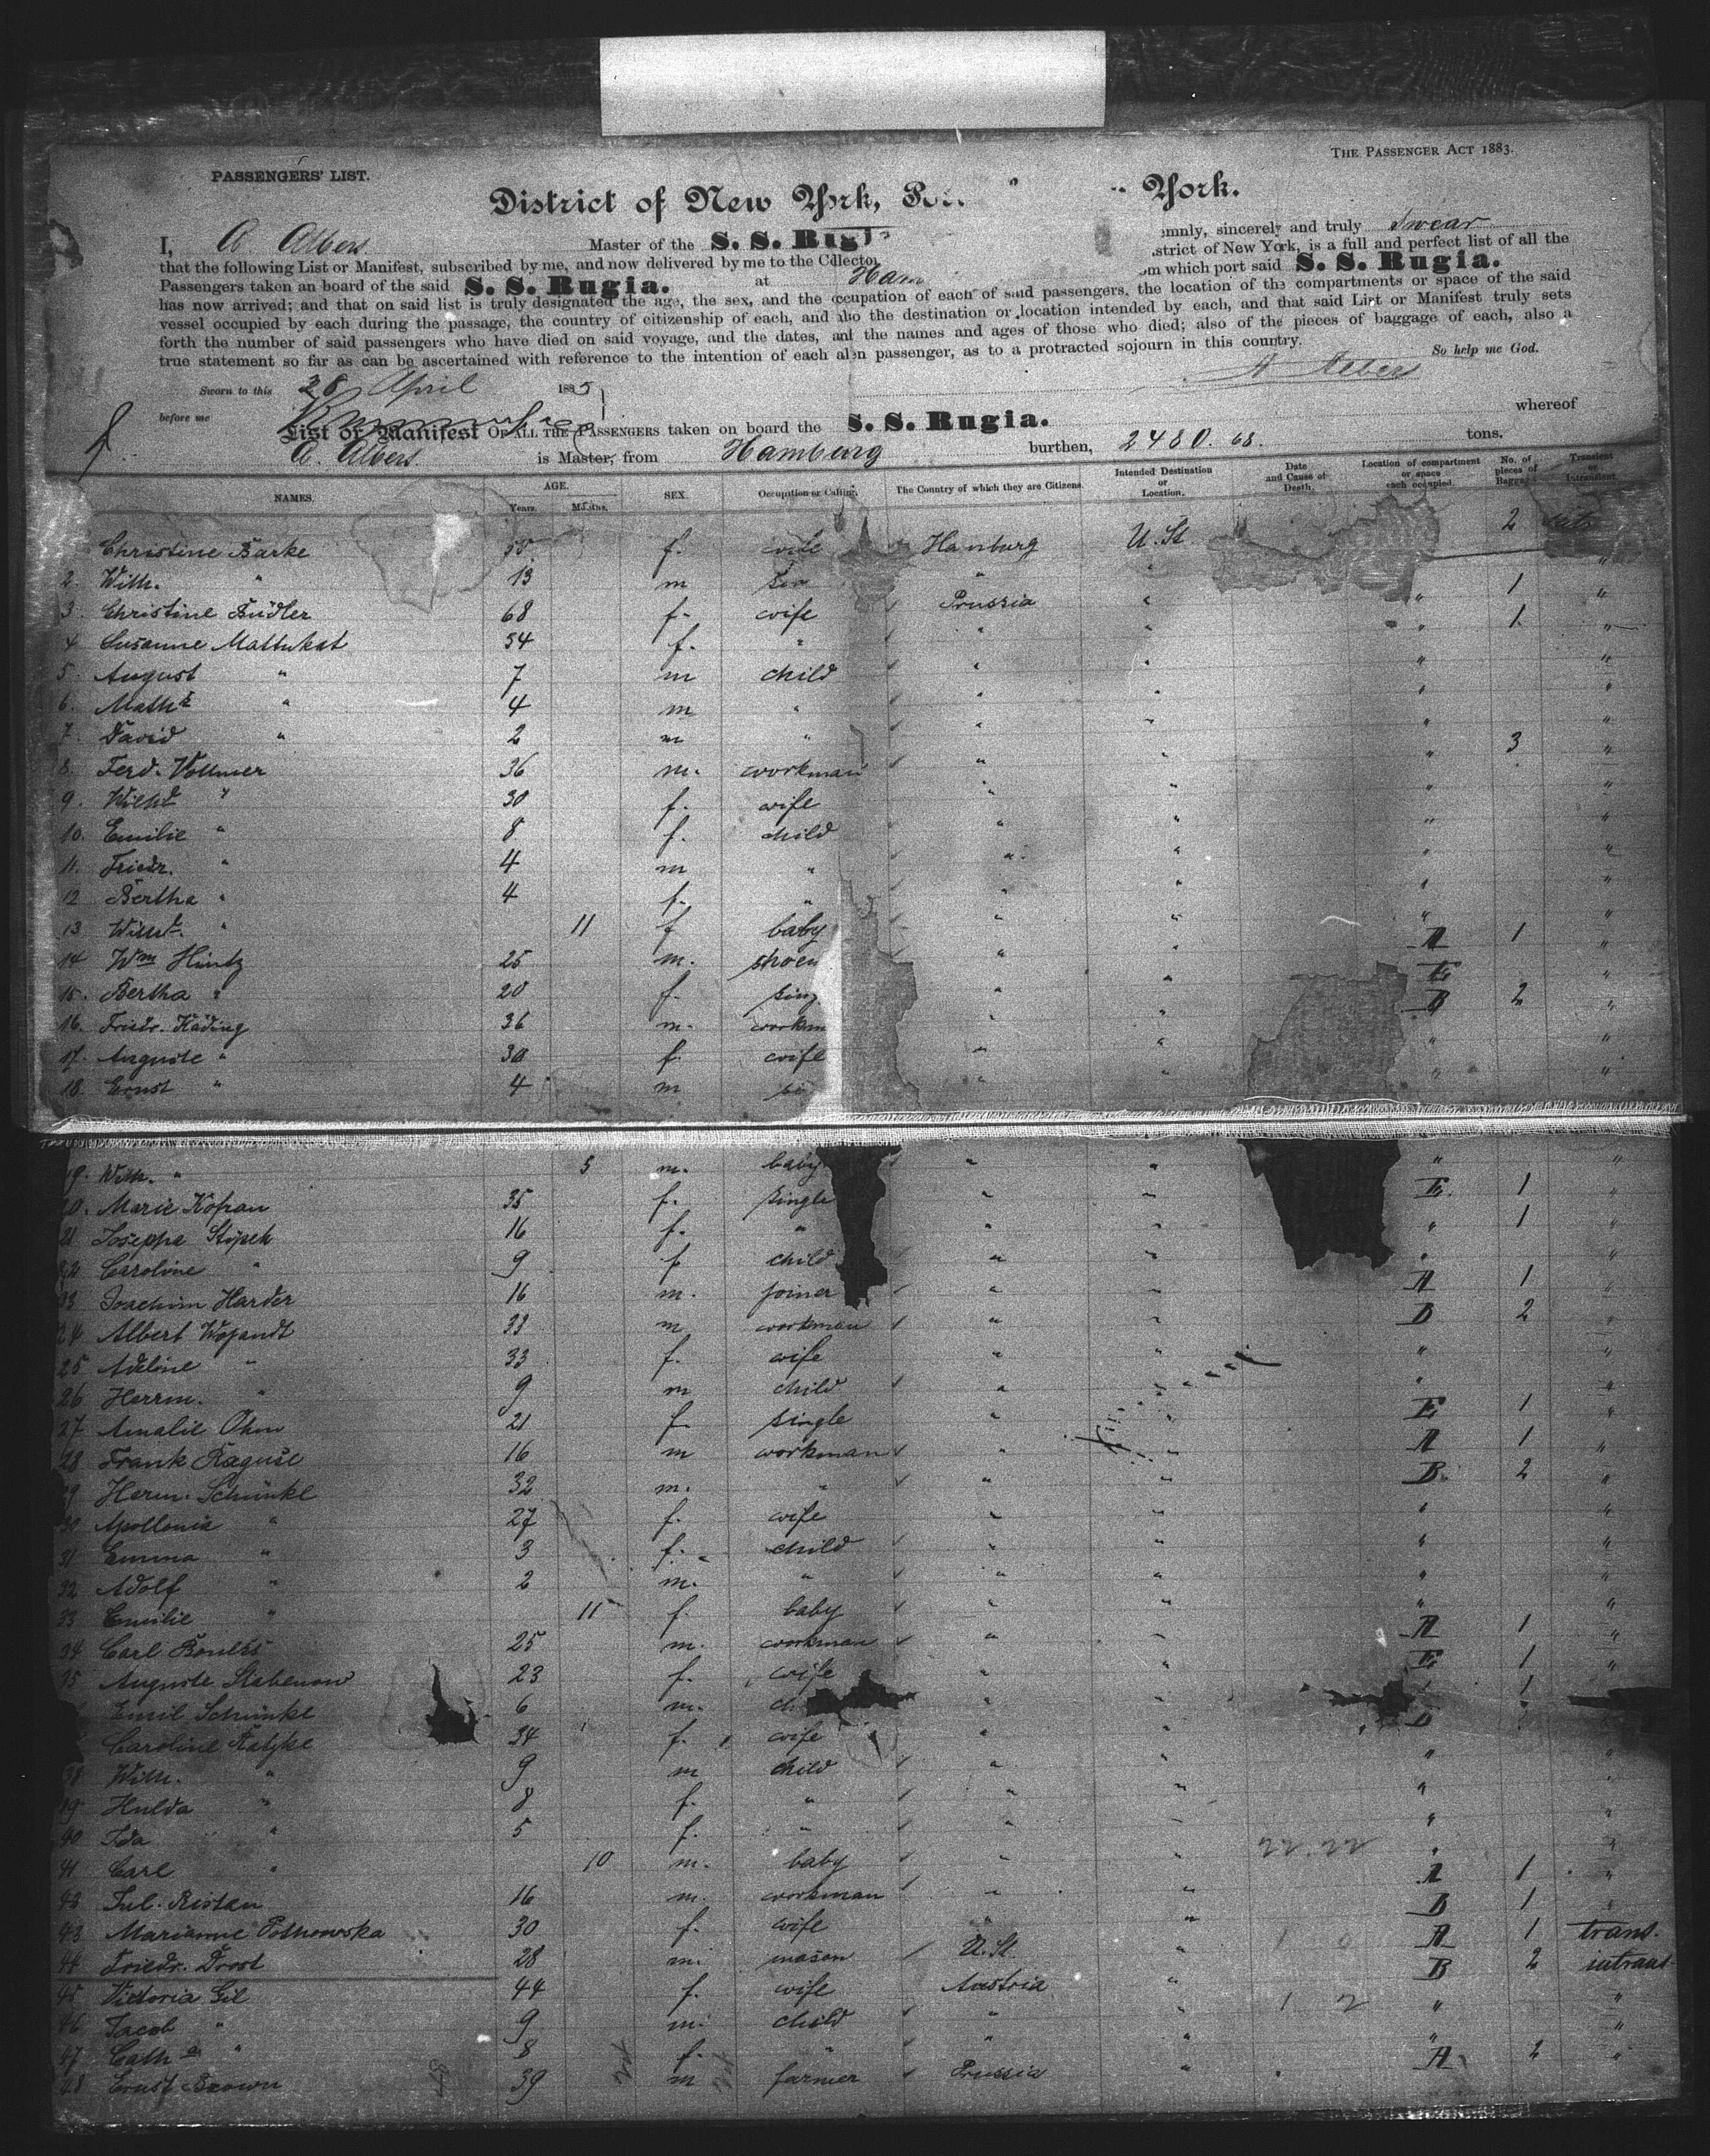 THE PASSENGER ACT 1883.
PASSENGERS' LIST.
District of New York, York.
I, A. Albers Master of the S. S. Rugi emnly, sincerely and truly swear
that the following List or Manifest, subscribed by me, and now delivered by me to the Collector strict of New York, is a full and perfect list of all the
Passengers taken an board of the said S. S. Rugia. at Ham om which port said S. S. Rugia.
has now arrived; and that on said list is truly designated the age, the sex, and the occupation of each of said passengers, the location of the compartments or space of the said
vessel occupied by each during the passage, the country of citizenship of each, and also the destination or location intended by each, and that said List or Manifest truly sets
forth the number of said passengers who have died on said voyage, and the dates, and the names and ages of those who died; also of the pieces of baggage of each, also a
true statement so far as can be ascertained with reference to the intention of each alien passenger, as to a protracted sojourn in this country. So help me God.
A Albers
Sworn to this 28 April 1885
before me
List or Manifest OF ALL THE PASSENGERS taken on board the S. S. Rugia. whereof
A. Albers is Master, from Hamburg burthen, 2480.68. tons.
NAMES. AGE. Years. Months. SEX. Occupation or Calling. The Country of which they are Citizens. Intended Destination or Location. Date and Cause of Death. Location of compartment or space each occupied. No. of pieces of Baggage Transient or Intransient.
Christine Barke f. wife Hamburg U. St. 2
2. Wilh. " 13 m son " " 1 "
3. Christine Fidler 68 f. wife Prussia " " 1. "
4 Susanne Mattukat 34 f. " " " " "
5. August " 7 m child " " " "
6. Math " 4 m " " " " "
7. David " 2 m " " " " 3 "
8. Ferd. Vollmer 36 m. workman " " " "
9. Wilhe " 30 f. wife " " " "
10. Emilie " 8 f. child " " " "
11. Friedr. " 4 m " " " " "
12 Bertha " 4 f. " " " " "
13 Wilhe. " 11 f baby " " " "
14 Wm Hintz 25 m. shoem " " A 1 "
15. Bertha " 20 f. sing " " E "
16. Friedr. Käding 36 m. workm " " B 2 "
17. Auguste " 30 f. wife " " " "
18. Ernst " 4 m " " " "
19. Wilh. " 5 m. baby " " " "
20. Marie Kopan 35 f. single " " E. 1 "
21 Josepha Stipek 16 f. " " " " 1 "
22 Caroline " 9 f child " " " "
23 Joachim Harder 16 m. joiner " " A 1 "
24 Albert Wojandt 33 m workman " " B 2 "
25 Adeline " 33 f. wife " " " "
26 Herrm. " 9 m child " " " "
27 Amalie Ohm 21 f. single " " E 1 "
28 Frank Raguse 16 m workman " " A 1 "
29 Herm. Schünke 32 m. " " " B. 2 "
30 Apollonia " 27 f. wife " " " "
31 Emma " 3 f. child " " " "
32 Adolf " 2 m. " " " " "
33 Emilie " 11 f. baby " " " "
34 Carl 25 m. workman " " A 1 "
35 Auguste Stabenow 23 f. wife " " E 1 "
Emil Schünke 6 m. ch " " " 1
Caroline Ratzke 34 f. wife " " B "
38 Wilh. " 9 m child " " " "
39 Hulda " 8 f. " " " " "
40 Ida " 5 f. " " " " "
41 Carl " 10 m. baby " " " "
42 Jul. Ristau 16 m. workman " " A 1 "
43 Marianne Pothowska 30 f. wife " " B 1 "
44 Friedr. Drost 28 m. mason U. St. " A 1 trans.
45 Victoria Gil 44 f. wife Austria " B 2 intrans
46 Jacob " 9 m. child " " " "
47 Cath a " 8 f. " " " " "
48 Ernst Brown 39 m farmer Prussia " A 2 "
22.22
1 2